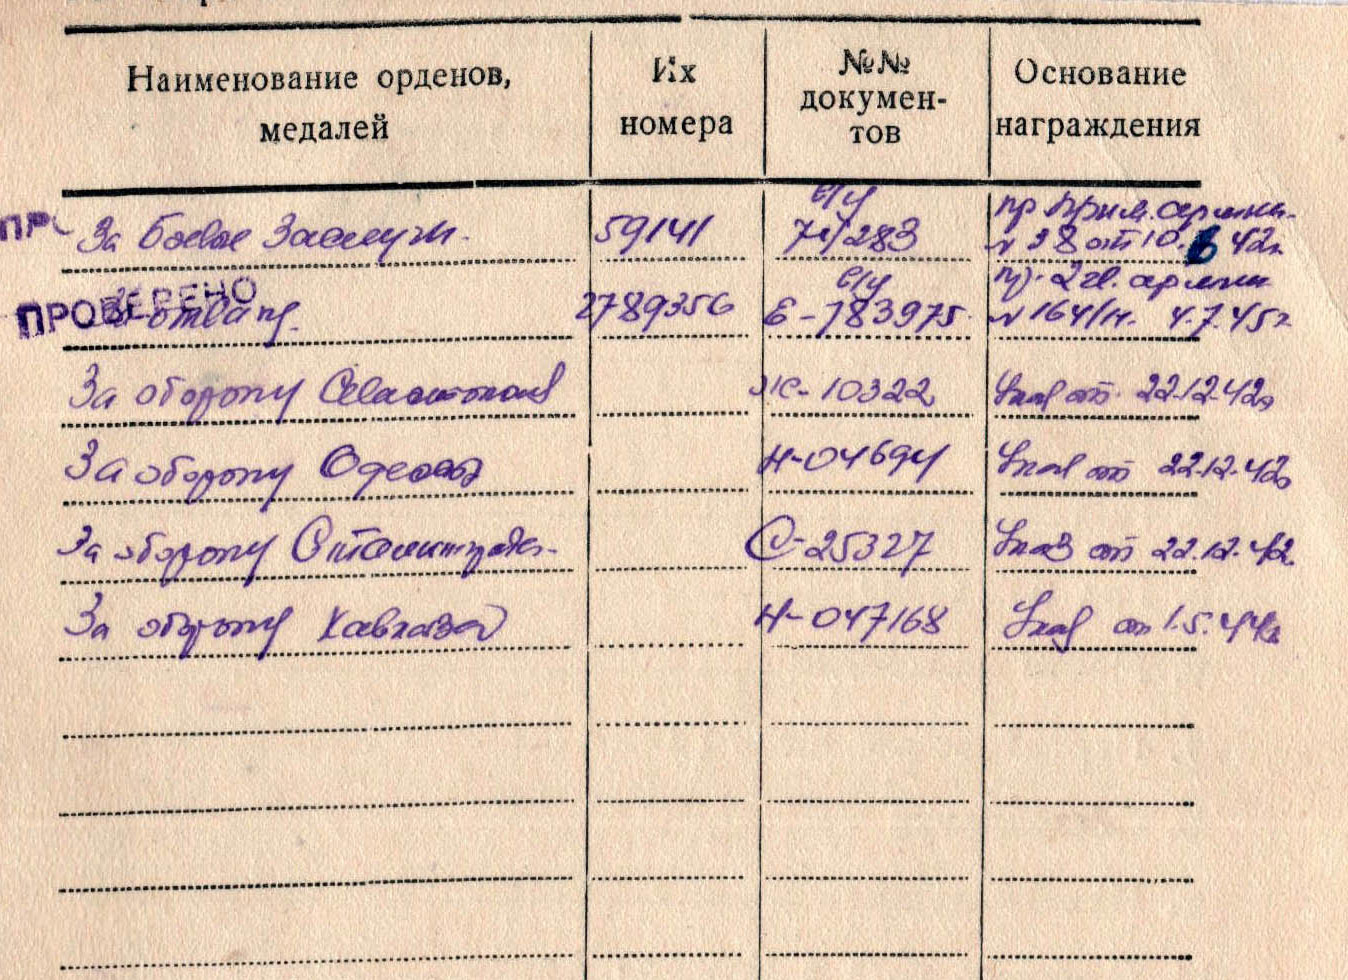 Наименование орденов, медалей
Их номера
№№ документов
Основание награждения
ПРО
За Боевые Заслуги.
59141
в/у
283
пр Прим. армии
№ 38 от 10. 6 42г.
ПРОВЕРЕНО
За отвагу.
2789356
в/у
Е-783975.
пр. 2 гв. армии
№ 164/н. 4.7.45г
За оборону Севастополя
Ж-10322
Указ от 22.12.42г
За оборону Одессы
Н-04694
Указ от 22.12.42г
За оборону Сталинграда.
С-25327
Указ от 22.12.42
За оборону Кавказа
Н-047168
Указ от 1.5.44г